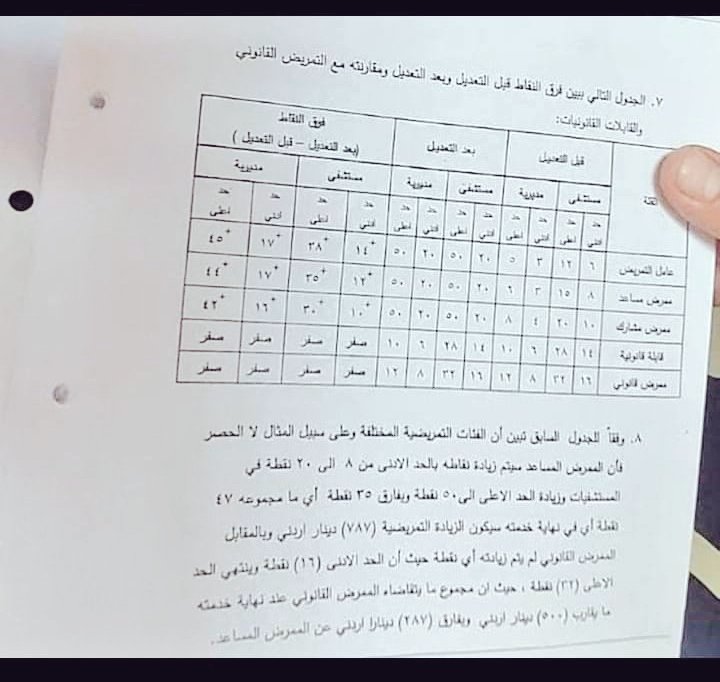 ٧. الجدول التالي يبين فرق النقاط قبل التعديل وبعد التعديل ومقارنته مع التمريض القانوني
والقابلات القانونيات:
الفئة | قبل التعديل | بعد التعديل | فرق النقاط (بعد التعديل – قبل التعديل )
مستشفى | مديرية | مستشفى | مديرية | مستشفى | مديرية
حد أدنى | حد اعلى | حد أدنى | حد اعلى | حد أدنى | حد اعلى | حد أدنى | حد اعلى | حد أدنى | حد اعلى | حد أدنى | حد اعلى
عامل التمريض | ٦ | ١٢ | ٣ | ٥ | ٢٠ | ٥٠ | ٢٠ | ٥٠ | +١٤ | +٣٨ | +١٧ | +٤٥
ممرض مساعد | ٨ | ١٥ | ٣ | ٦ | ٢٠ | ٥٠ | ٢٠ | ٥٠ | +١٢ | +٣٥ | +١٧ | +٤٤
ممرض مشارك | ١٠ | ٢٠ | ٤ | ٨ | ٢٠ | ٥٠ | ٢٠ | ٥٠ | +١٠ | +٣٠ | +١٦ | +٤٢
قابلة قانونية | ١٤ | ٢٨ | ٦ | ١٠ | ١٤ | ٢٨ | ٦ | ١٠ | صفر | صفر | صفر | صفر
ممرض قانوني | ١٦ | ٣٢ | ٨ | ١٢ | ١٦ | ٣٢ | ٨ | ١٢ | صفر | صفر | صفر | صفر
٨. وفقاً للجدول السابق تبين أن الفئات التمريضية المختلفة وعلى سبيل المثال لا الحصر
فأن الممرض المساعد سيتم زيادة نقاطه بالحد الادنى من ٨ الى ٢٠ نقطة في
المستشفيات وزيادة الحد الاعلى الى٥٠ نقطة وبفارق ٣٥ نقطة أي ما مجموعه ٤٧
نقطة أي في نهاية خدمته سيكون الزيادة التمريضية (٧٨٧) دينار اردني وبالمقابل
الممرض القانوني لم يتم زيادته أي نقطة حيث أن الحد الادنى (١٦) نقطة وينتهي الحد
الاعلى (٣٢) نقطة ، حيث ان مجموع ما يتقاضاه الممرض القانوني عند نهاية خدمته
ما يقارب (٥٠٠) دينار اردني وبفارق (٢٨٧) دينارا اردني عن الممرض المساعد.